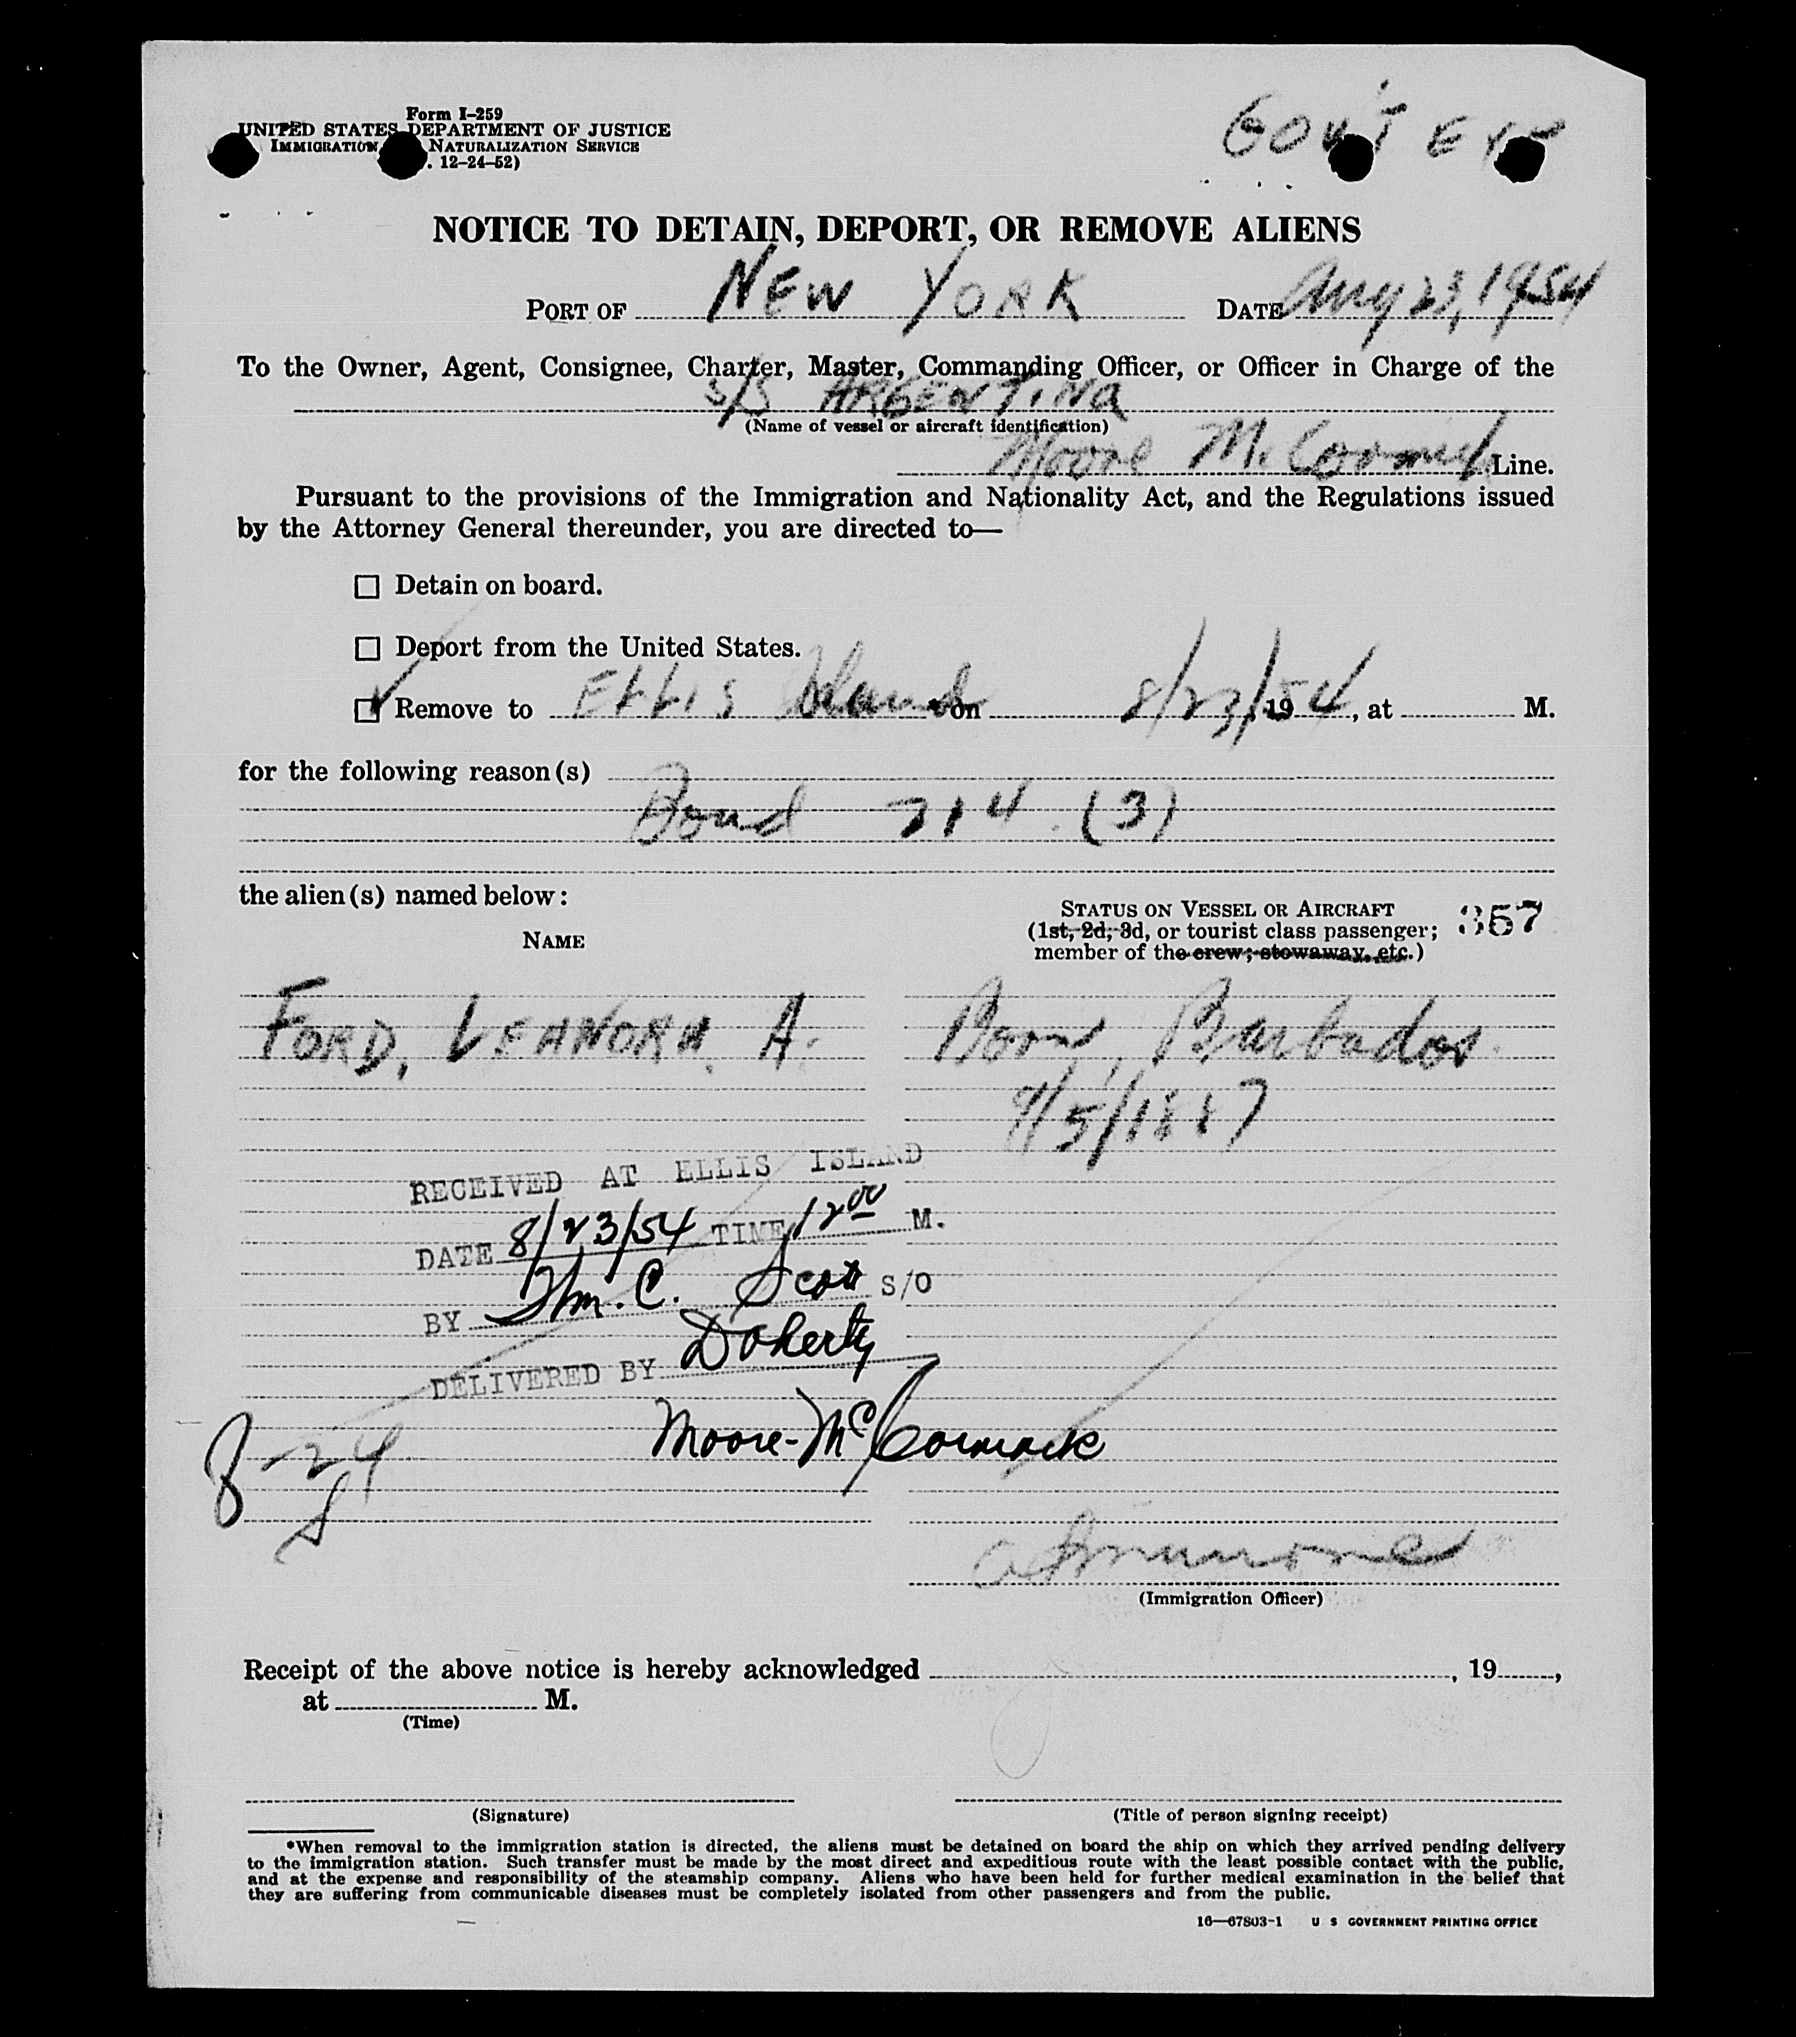 Form I-259
UNITED STATES DEPARTMENT OF JUSTICE
IMMIGRATION NATURALIZATION SERVICE
. 12-24-52)
GOV'T
NOTICE TO DETAIN, DEPORT, OR REMOVE ALIENS
PORT OF NEW YORK DATE Aug 23, 1954
To the Owner, Agent, Consignee, Charter, Master, Commanding Officer, or Officer in Charge of the
S/S ARGENTINA
(Name of vessel or aircraft identification)
Moore McCormick Line.
Pursuant to the provisions of the Immigration and Nationality Act, and the Regulations issued
by the Attorney General thereunder, you are directed to—
☐ Detain on board.
☐ Deport from the United States.
☑ Remove to ELLIS Island on 8/23/, 1954, at M.
for the following reason(s)
Bond 214 (3)
the alien(s) named below:
NAME
STATUS ON VESSEL OR AIRCRAFT
(1st, 2d, 3d, or tourist class passenger;
member of the crew; stowaway, etc.)
357
FORD, LEANORA. A. Born, Barbados.
9/5/1887
RECEIVED AT ELLIS ISLAND
DATE 8/23/54 TIME 12 00 M.
BY Wm. C. Scott S/O
DELIVERED BY Doherty
Moore-McCormack
8-24
(Immigration Officer)
Receipt of the above notice is hereby acknowledged , 19 ,
at M.
(Time)
(Signature) (Title of person signing receipt)
*When removal to the immigration station is directed, the aliens must be detained on board the ship on which they arrived pending delivery
to the immigration station. Such transfer must be made by the most direct and expeditious route with the least possible contact with the public,
and at the expense and responsibility of the steamship company. Aliens who have been held for further medical examination in the belief that
they are suffering from communicable diseases must be completely isolated from other passengers and from the public.
16—67803-1 U S GOVERNMENT PRINTING OFFICE